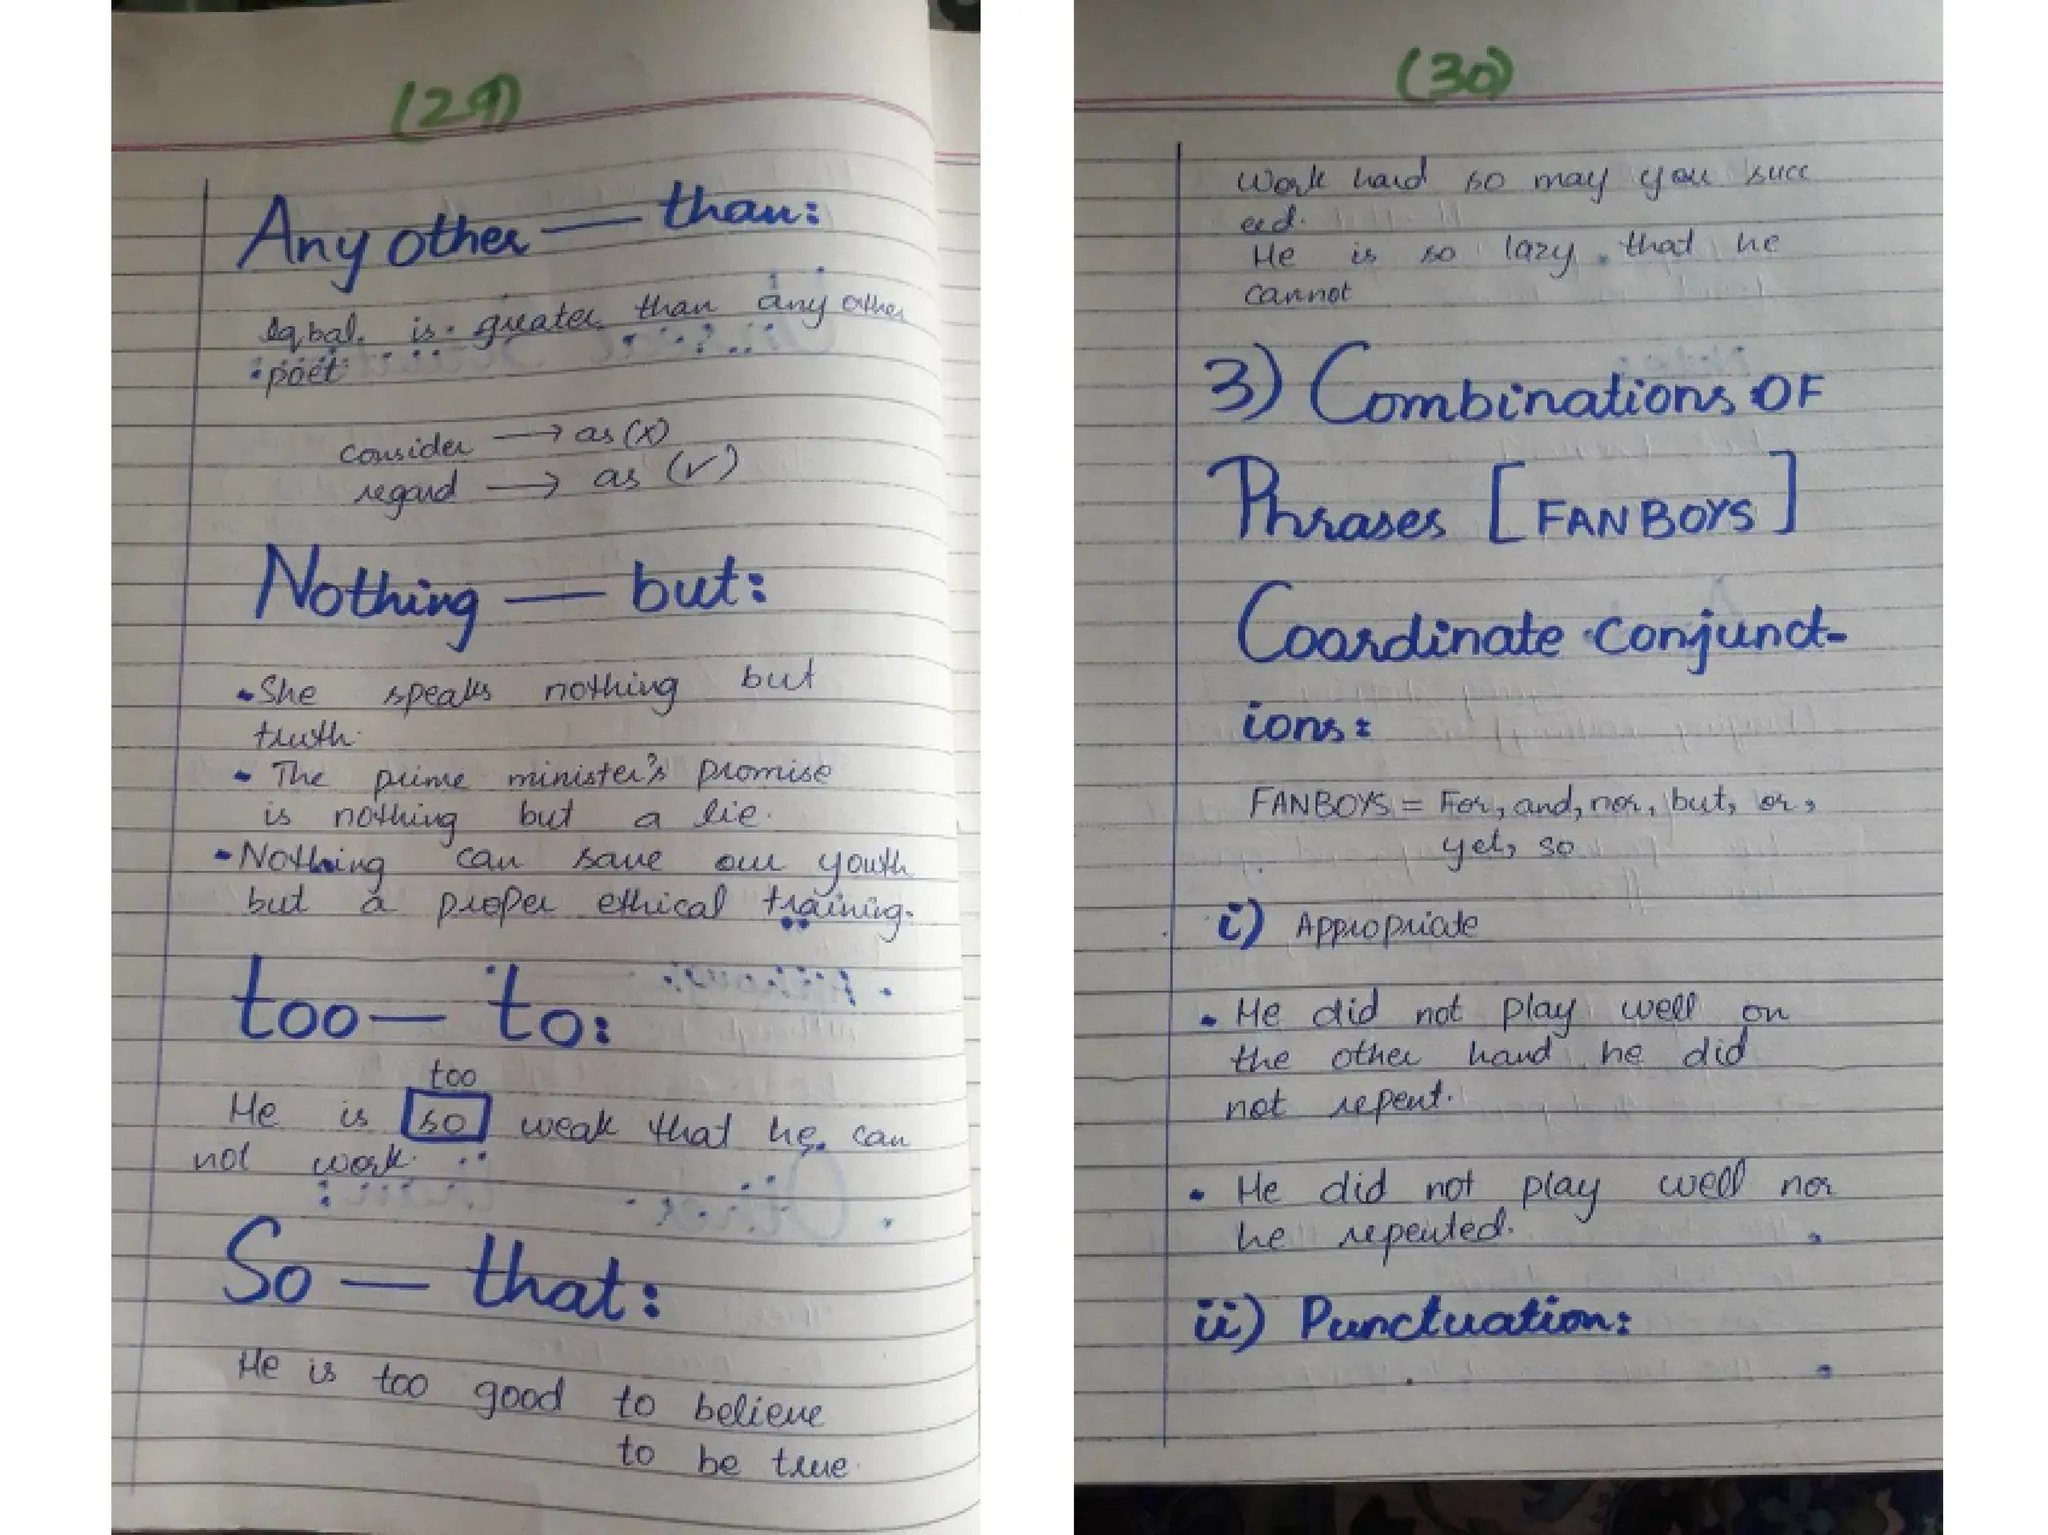 (29)
Any other — than:
Iqbal is greater than any other
poet
consider → as (x)
regard → as (✓)
Nothing — but:
• She speaks nothing but
truth.
• The prime minister's promise
is nothing but a lie.
• Nothing can save our youth
but a proper ethical training.
too — to:
too
He is so weak that he can
not work.
So — that:
He is too good to believe
to be true.
(30)
Work hard so may you succ
eed.
He is so lazy that he
cannot
3) Combinations OF
Phrases [FANBOYS]
Coordinate conjunct-
ions:
FANBOYS = For, and, nor, but, or,
yet, so
i) Appropriate
• He did not play well on
the other hand he did
not repent.
• He did not play well nor
he repented.
ii) Punctuation: